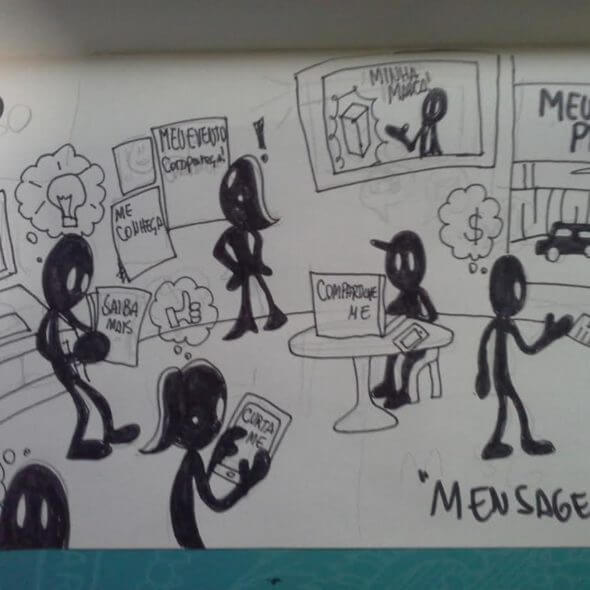 MINHA
MARCA!
MEU EVENTO
Compareça!
!
ME
CONHEÇA
MEU
P
$
SAIBA
MAIS
COMPARTILHE
ME
CURTA
ME
"MENSAGE